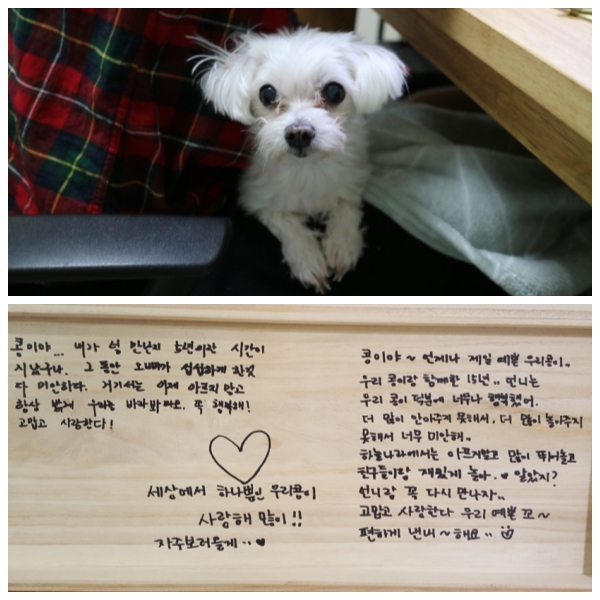 콩이야... 내가 널 만난지 5년이란 시간이
지났구나. 그 동안 오빠가 섭섭하게 한것
다 미안하다. 거기서는 이제 아프지 말고
항상 밝게 우리를 바라봐줘. 꼭 행복해!
고맙고 사랑한다!
세상에서 하나뿐인 우리콩이
사랑해 많이!!
자주보러들게..♥
콩이야~ 언제나 제일 예쁜 우리콩이..
우리 콩이랑 함께한 15년.. 언니는
우리 콩이 덕분에 너무나 행복했어.
더 많이 안아주지 못해서, 더 많이 놀아주지
못해서 너무 미안해..
하늘나라에서는 아프지말고 많이 뛰어놀고
친구들이랑 재밌게 놀아.♥ 알았지?
언니랑 꼭 다시 만나자..
고맙고 사랑한다 우리 예쁜 꼬~
편하게 해요..